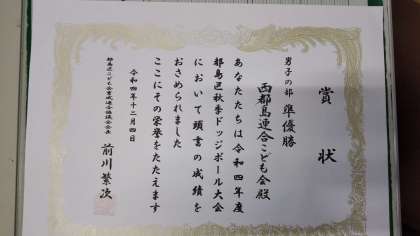 賞状
男子の部 準優勝
西都島連合こども会殿
あなたたちは令和四年度
都島区秋季ドッジボール大会
において頭書の成績を
おさめられました
ここにその栄誉をたたえます
令和四年十二月四日
都島区こども会育成連合協議会会長
前川繁次